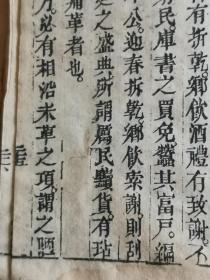 有折乾。鄉飲酒禮有致謝。不
民庫書之買免蠶其富戶。編
不公。迎春折乾。鄉飲索謝。則刻
是之盛典。所謂屬民蠧貨。有玷
蒲葦者也。
必有相沿未革之項。謂之陋